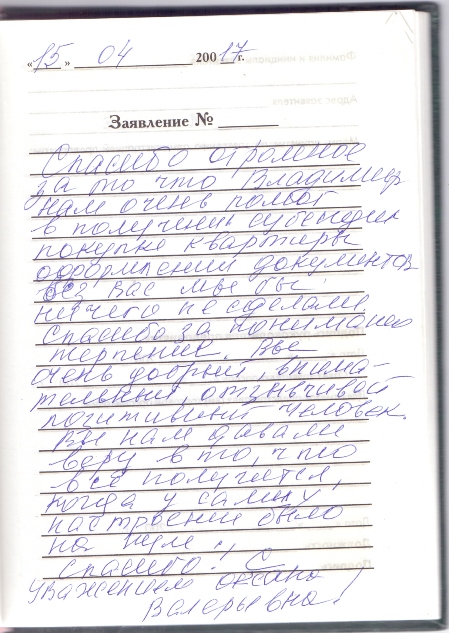 «15» 04 20017 г.
Заявление №
Спасибо огромное
за то что Владимир
нам очень помог
в получении субсидии
покупке квартиры
оформлении документов
без вас мы бы
ничего не сделали.
Спасибо за понимание
терпение. Вы
очень добрый, внима-
тельный, отзывчивый
позитивный человек.
Вы нам давали
веру в то, что
все получится,
когда у самих
настроение было
на нуле!
спасибо! С
уважением Оксана
Валерьевна!